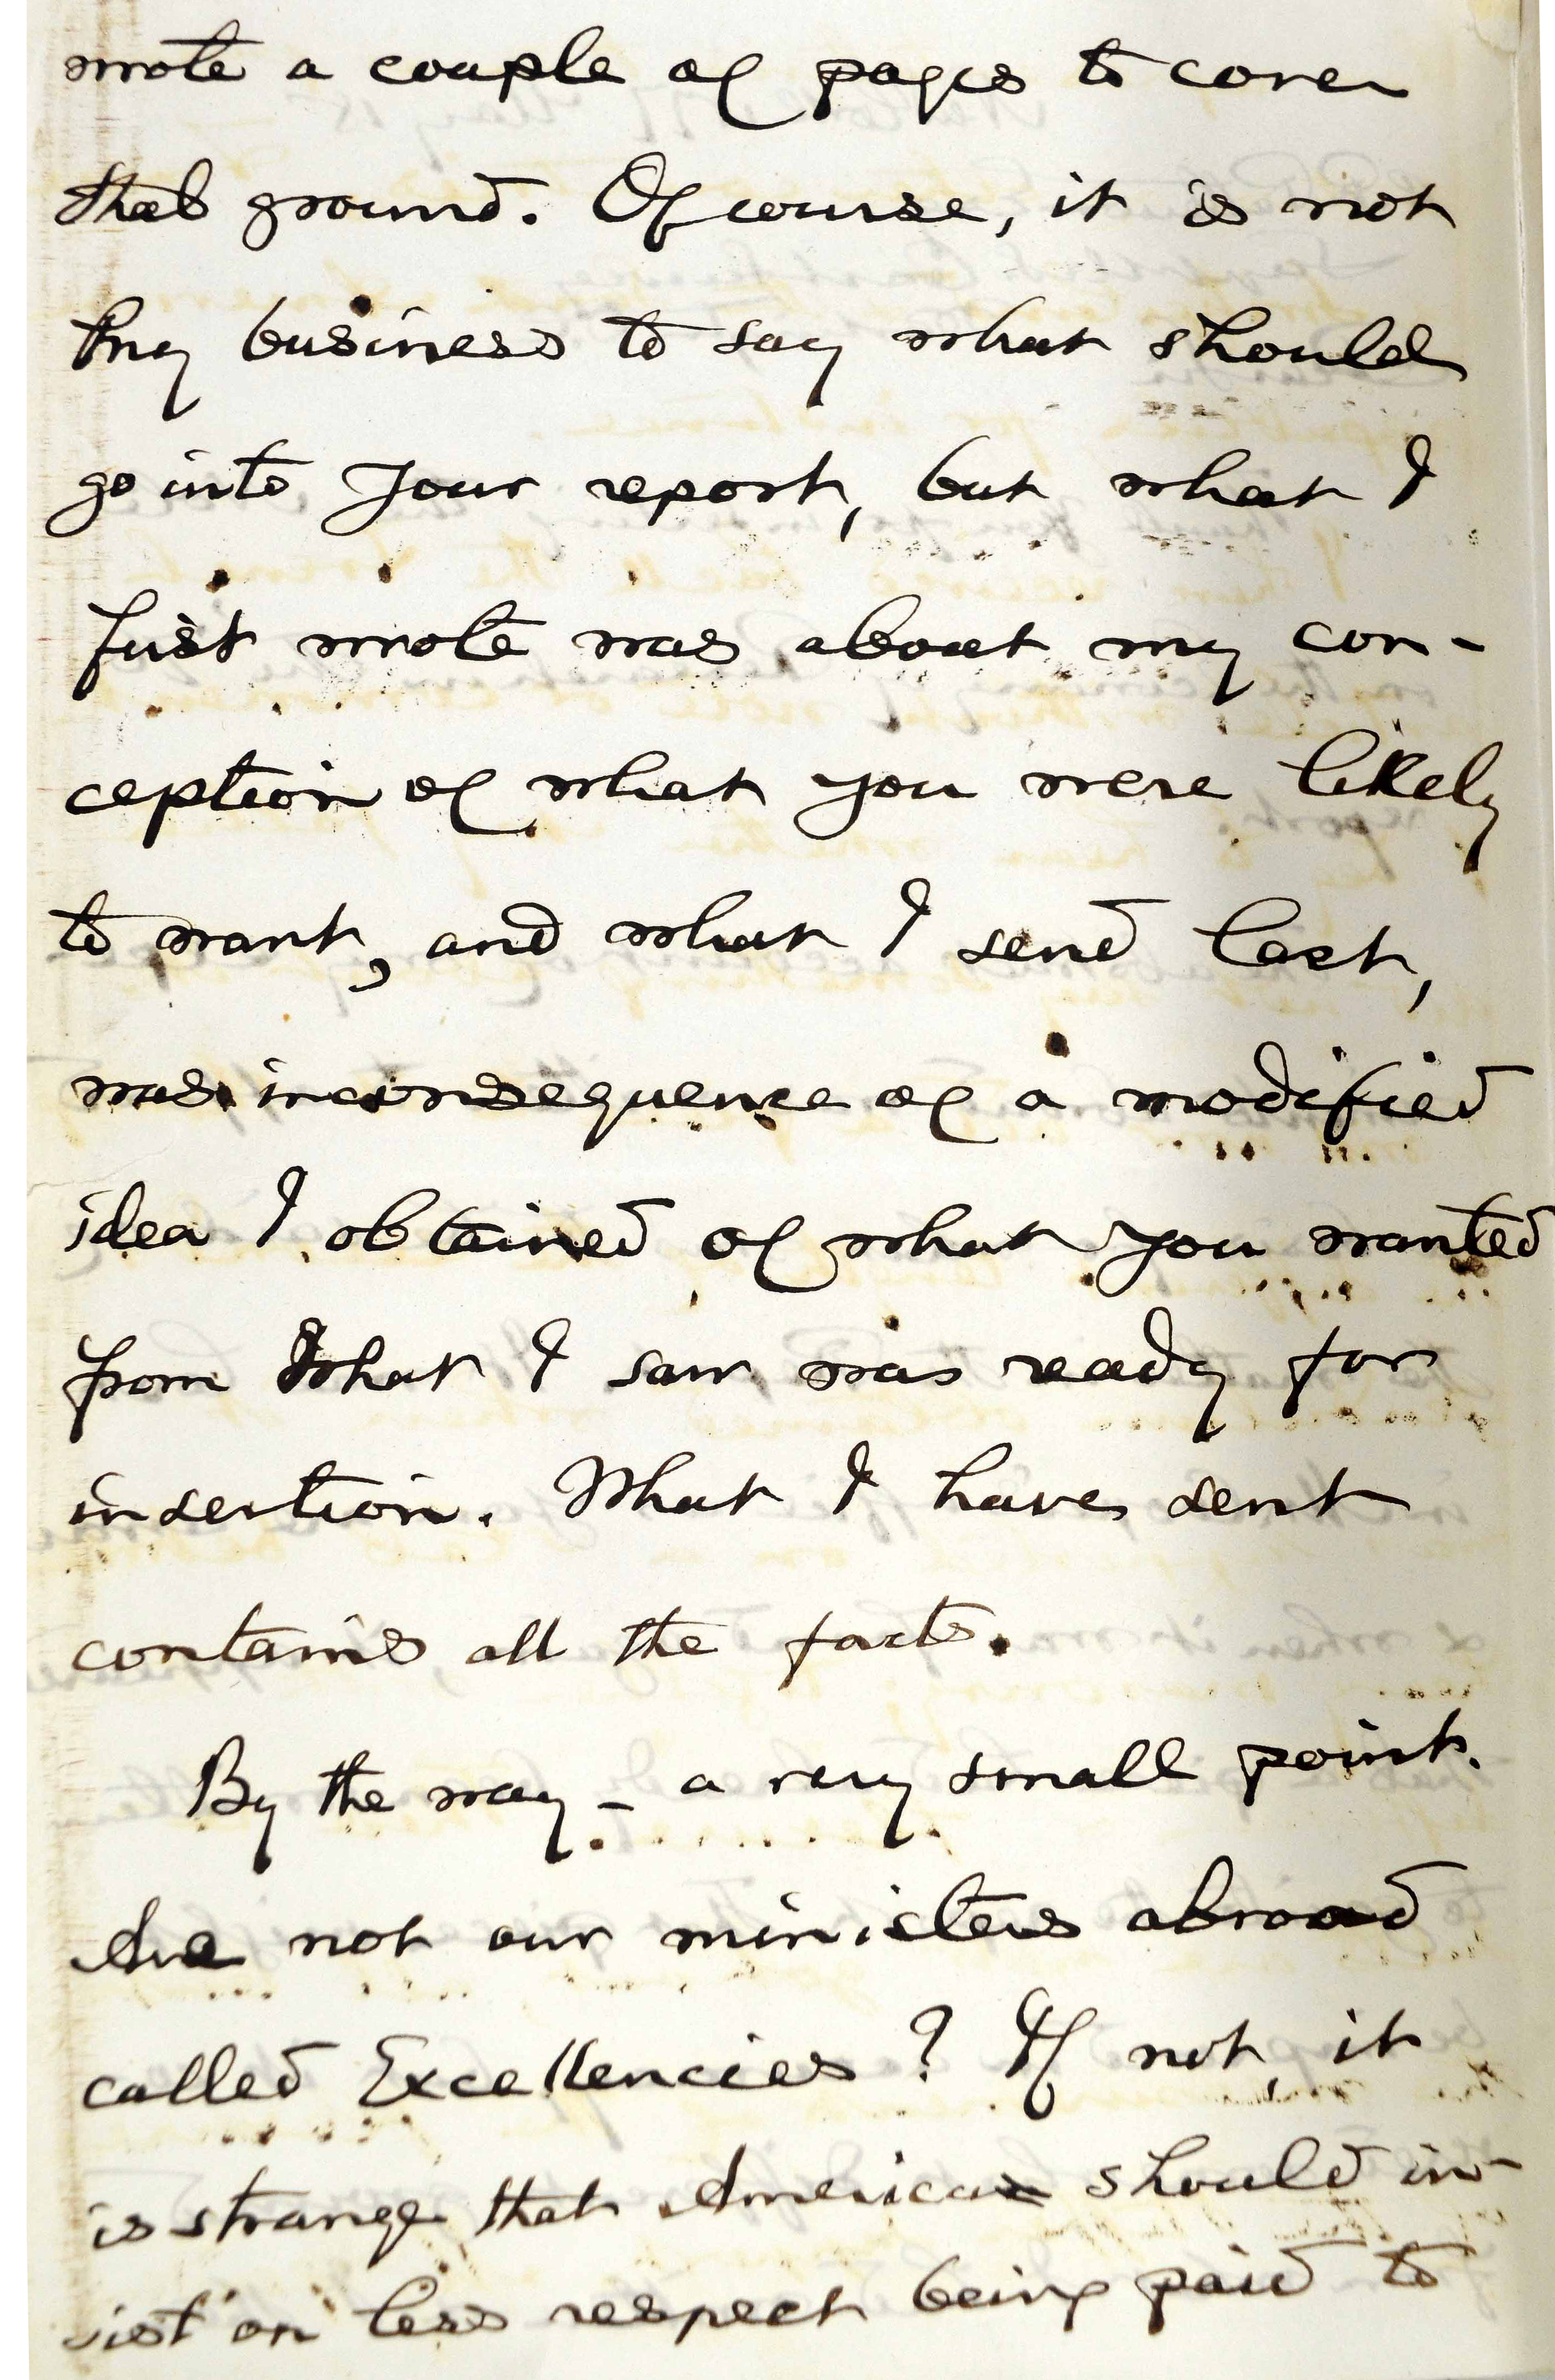 wrote a couple of pages to cover
that ground. Of course, it is not
my business to say what should
go into your report, but what I
first wrote was about my con-
ception of what you were likely
to want, and what I send last,
was in consequence of a modified
idea I obtained of what you wanted
from what I saw was ready for
insertion. What I have sent
contains all the facts.
By the way – a very small point.
Are not our ministers abroad
called Excellencies? If not, it
is strange that America should in-
sist on less respect being paid to